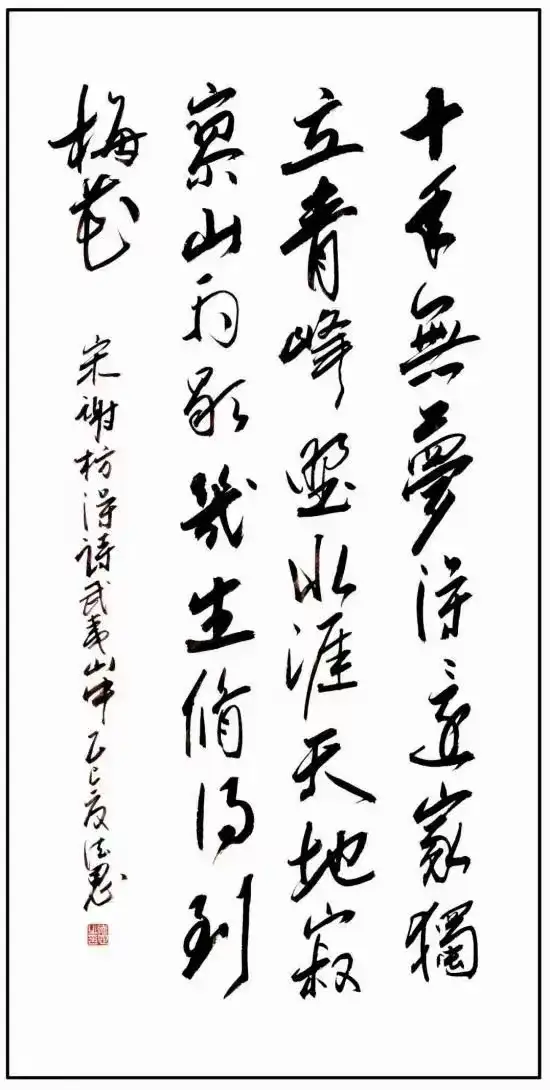 十年無夢得還家獨
立青峰野水涯天地寂
寥山雨歇幾生脩得到
梅花
宋謝枋得詩武夷山中乙巳夏